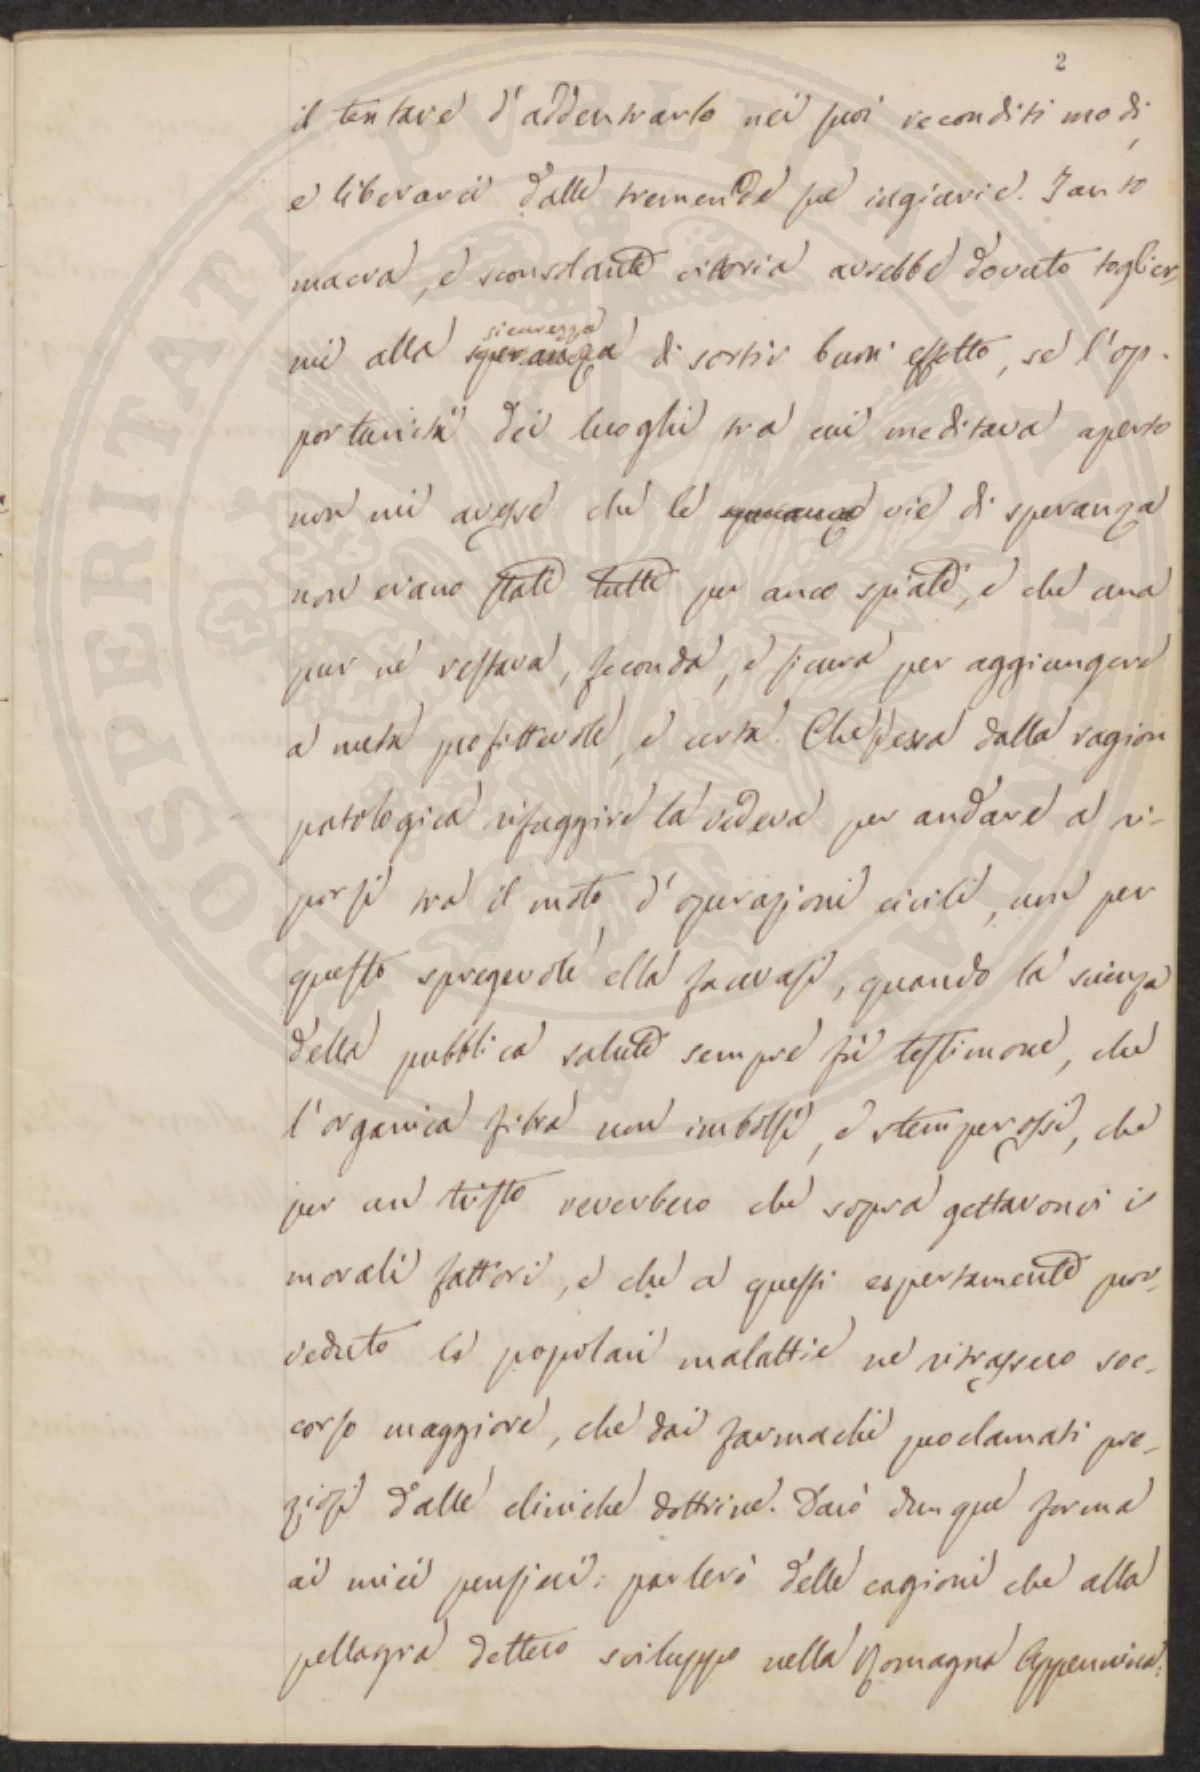 2
il tentare d'addentrarlo nei suoi reconditi modi,
e liberarci dalle tremende sue ingiurie. Tanto
macra, e sconsolante vittoria avrebbe dovuto toglier,
mi alla speranza sicurezza di sortir buon effetto, se l'op-
portunità dei luoghi tra cui meditava aperto
non mi avesse che le vie di speranza
non erano state tutte per anco spiate, e che una
pur ne restava, feconda, e sicura per aggiungere
a meta profittevole, e certa. Che s'essa dalla ragion
patologica rifuggire la vedeva per andare a ri-
porsi tra il moto d'operazioni civili, non per
questo spregevole ella facevasi, quando la scienza
della pubblica salute sempre fù testimone, che
l'organica fibra non imbolsì, e stemperossi, che
per un tristo reverbero che sopra gettaronvi i
morali fattori, e che a questi espertamente prov,
veduto le popolari malattie ne ritrassero soc-
corso maggiore, che dai farmachi proclamati pre-
ziosi dalle cliniche dottrine. Darò dunque forma
ai miei pensieri: parlerò delle cagioni che alla
pellagra dettero sviluppo nella Romagna Appennina:
PROSPERITATI PUBLICAE AUGENDAE